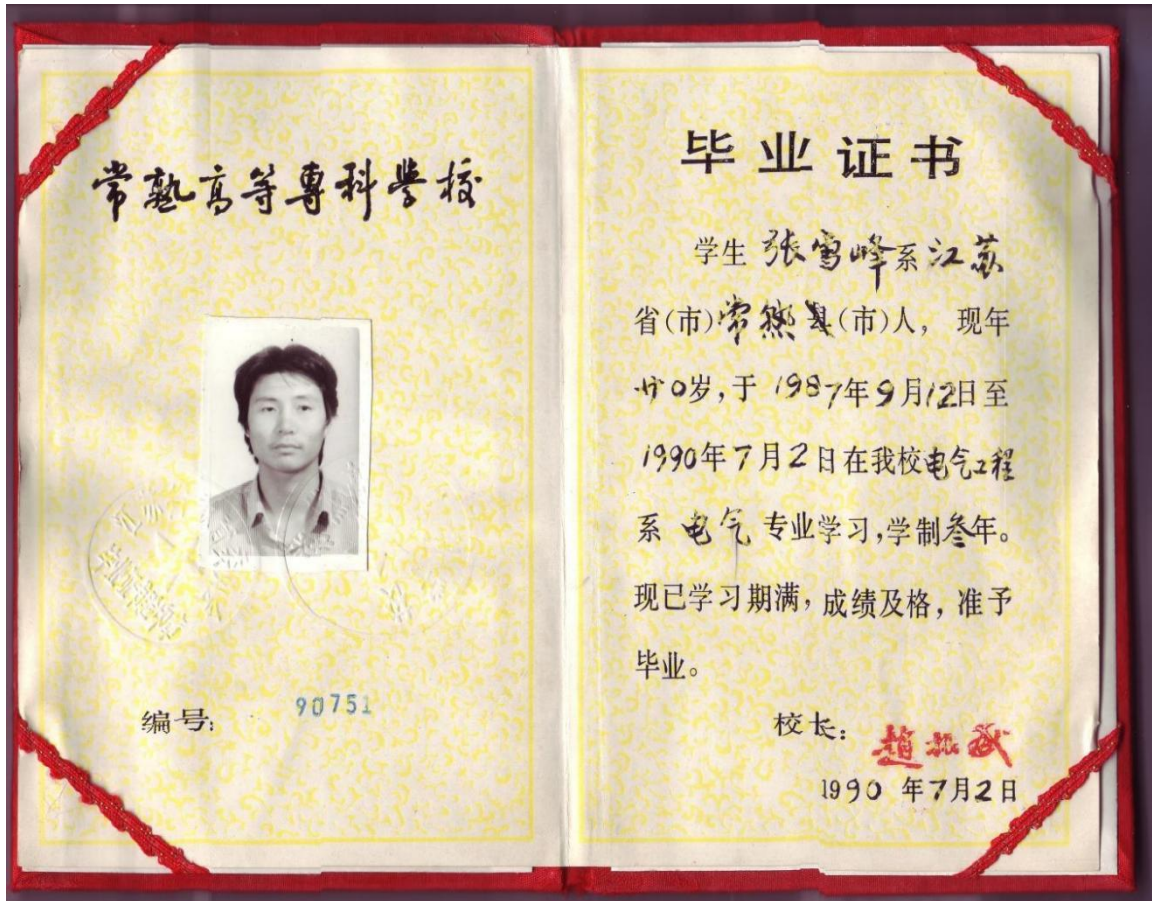 常熟高等專科學校
编号: 90751
毕业证书
学生 张雪峰 系 江苏
省(市)常熟县(市)人, 现年
廿0岁,于 1987年9月12日至
1990年7月2日在我校电气工程
系 电气 专业学习,学制叁年。
现已学习期满,成绩及格,准予
毕业。
校长: 趙振武
1990 年7月2日